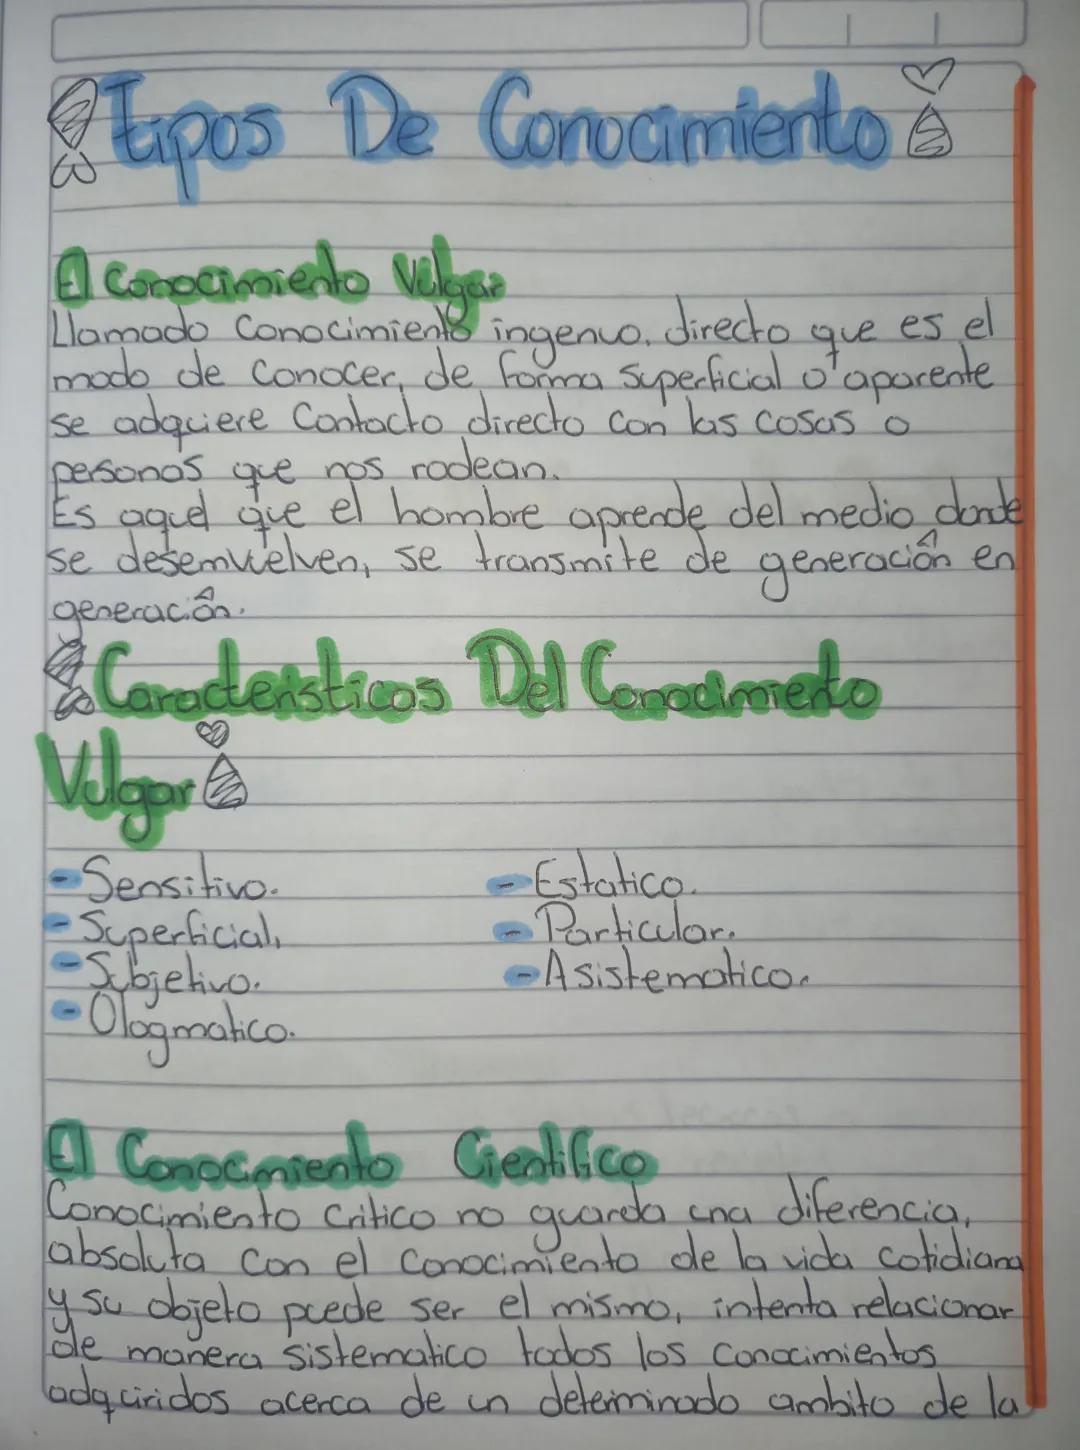 Tipos De Conocimiento
El Conocimiento Vulgar
Llamado Conocimiento ingenuo, directo que es el
modo de Conocer, de forma Superficial o aparente
se adquiere Contacto directo con las cosas o
personas que nos rodean.
Es aquel que el hombre aprende del medio donde
se desemvuelven, se transmite de generación en
generación.
Características Del Conocimiento
Vulgar
- Sensitivo.
- Superficial,
- Subjetivo.
- Ologmatico.
- Estatico.
- Particular.
- Asistematico.
El Conocimiento Cientifico
Conocimiento Critico no guarda una diferencia,
absoluta con el conocimiento de la vida cotidiana
y su objeto puede ser el mismo, intenta relacionar
de manera sistematico todos los conocimientos
adquiridos acerca de un determinado ambito de la